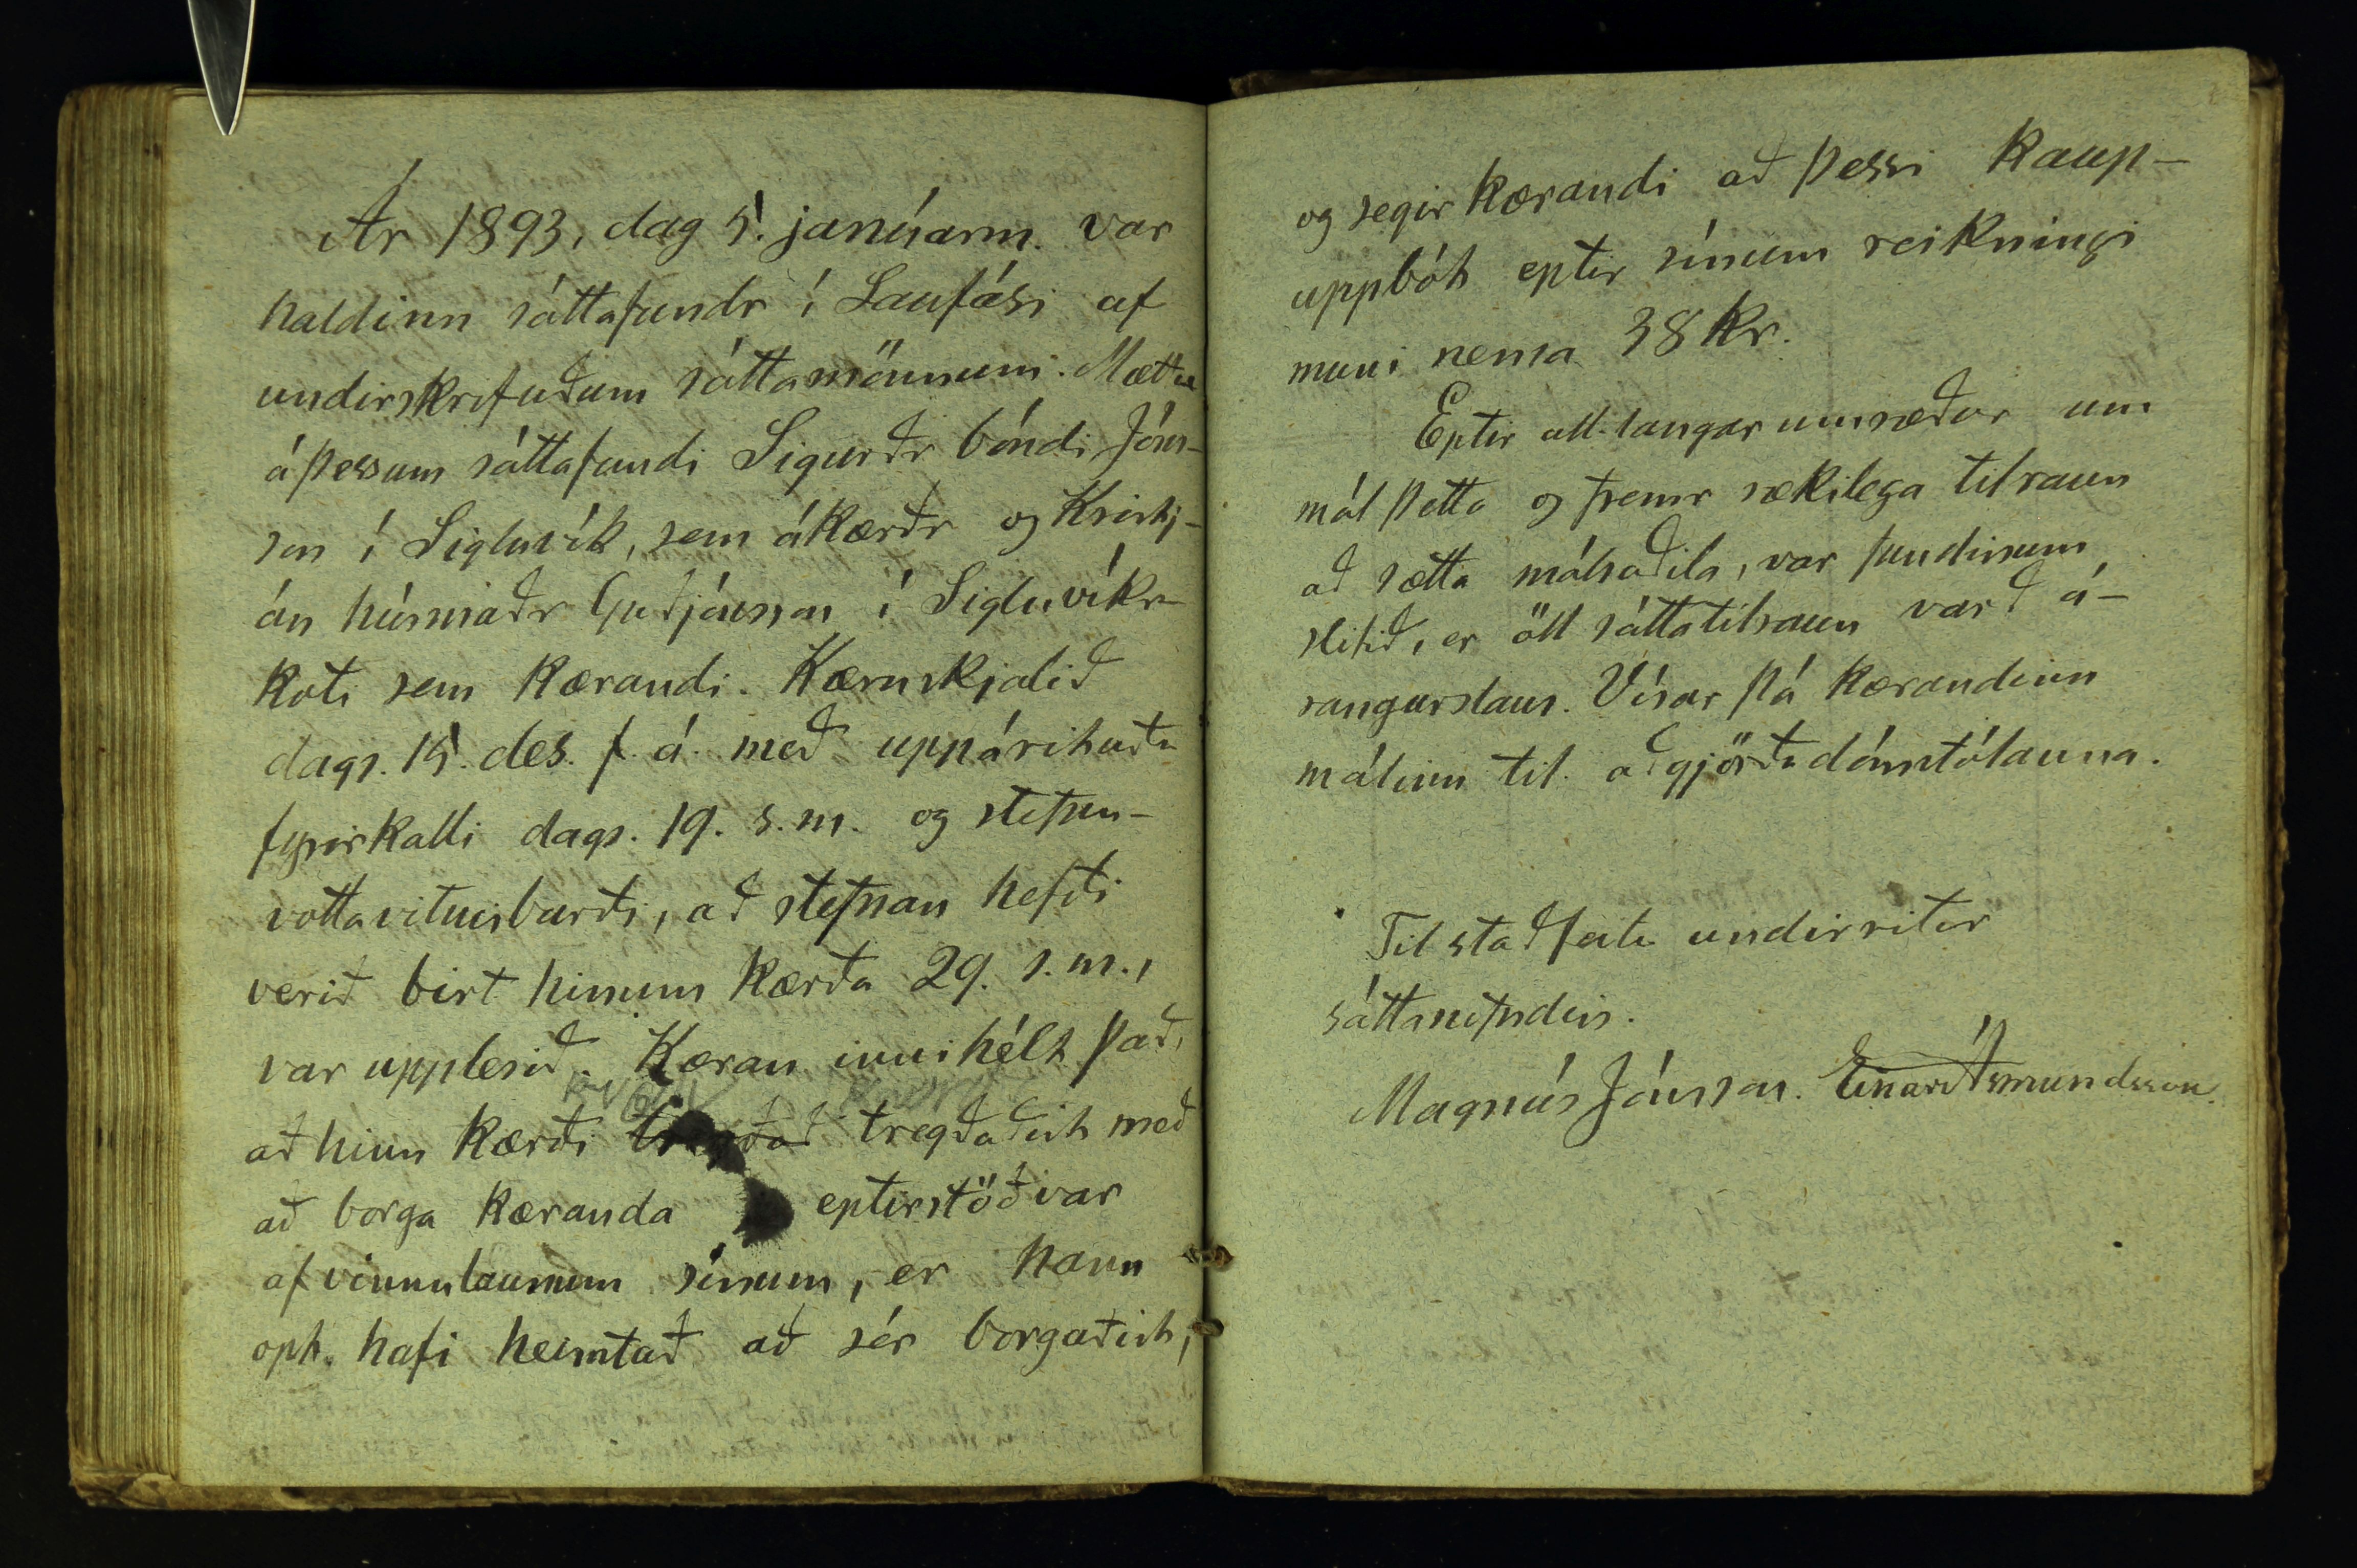 Ár 1893, dag 5. janúarm. var
haldinn sáttafundr í Laufási af
undirskrifuðum sáttamönnum. Mættu
á þessum sáttafundi Sigurðr bóndi Jóns-
son í Sigluvík, sem ákærðr og Kristj-
án húsmaðr Guðjónsson í Sigluvíkr-
koti sem kærandi. Kæruskjalið
dags. 15. des. f. á. með uppáskrifuðu
fyrirkalli dags. 19. s. m. og stefnu-
votta vitnisburði, að stefnan hefði
verið birt hinum kærða 29. s. m.,
var upplesið. Kæran innihélt það,
að hinn kærði tregðað tregðaðist með
að borga kæranda eptirstöðvar
af vinnulaunum sínum, er hann
opt. hafi heimtað að sér borgaðist,
og segir kærandi að þessi kaup-
uppbót eptir sínum reikningi
muni nema 38 kr.
Eptir all-langar umræður um
mál þetta og fremr rækilega tilraun
að sætta málsaðila, var fundinum
slitið, er öll sáttatilraun varð á-
rangurslaus. Vísar þá kærandinn
málinu til aðgjörða dómstólanna.
Til staðfestu undirritar
sáttanefndin.
Magnús Jónsson. Einar Ásmundsson.